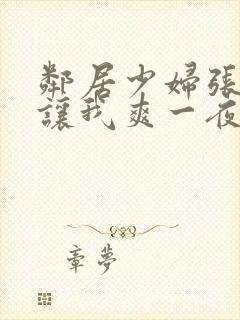 鄰居少婦張
讓我爽一夜
章夢